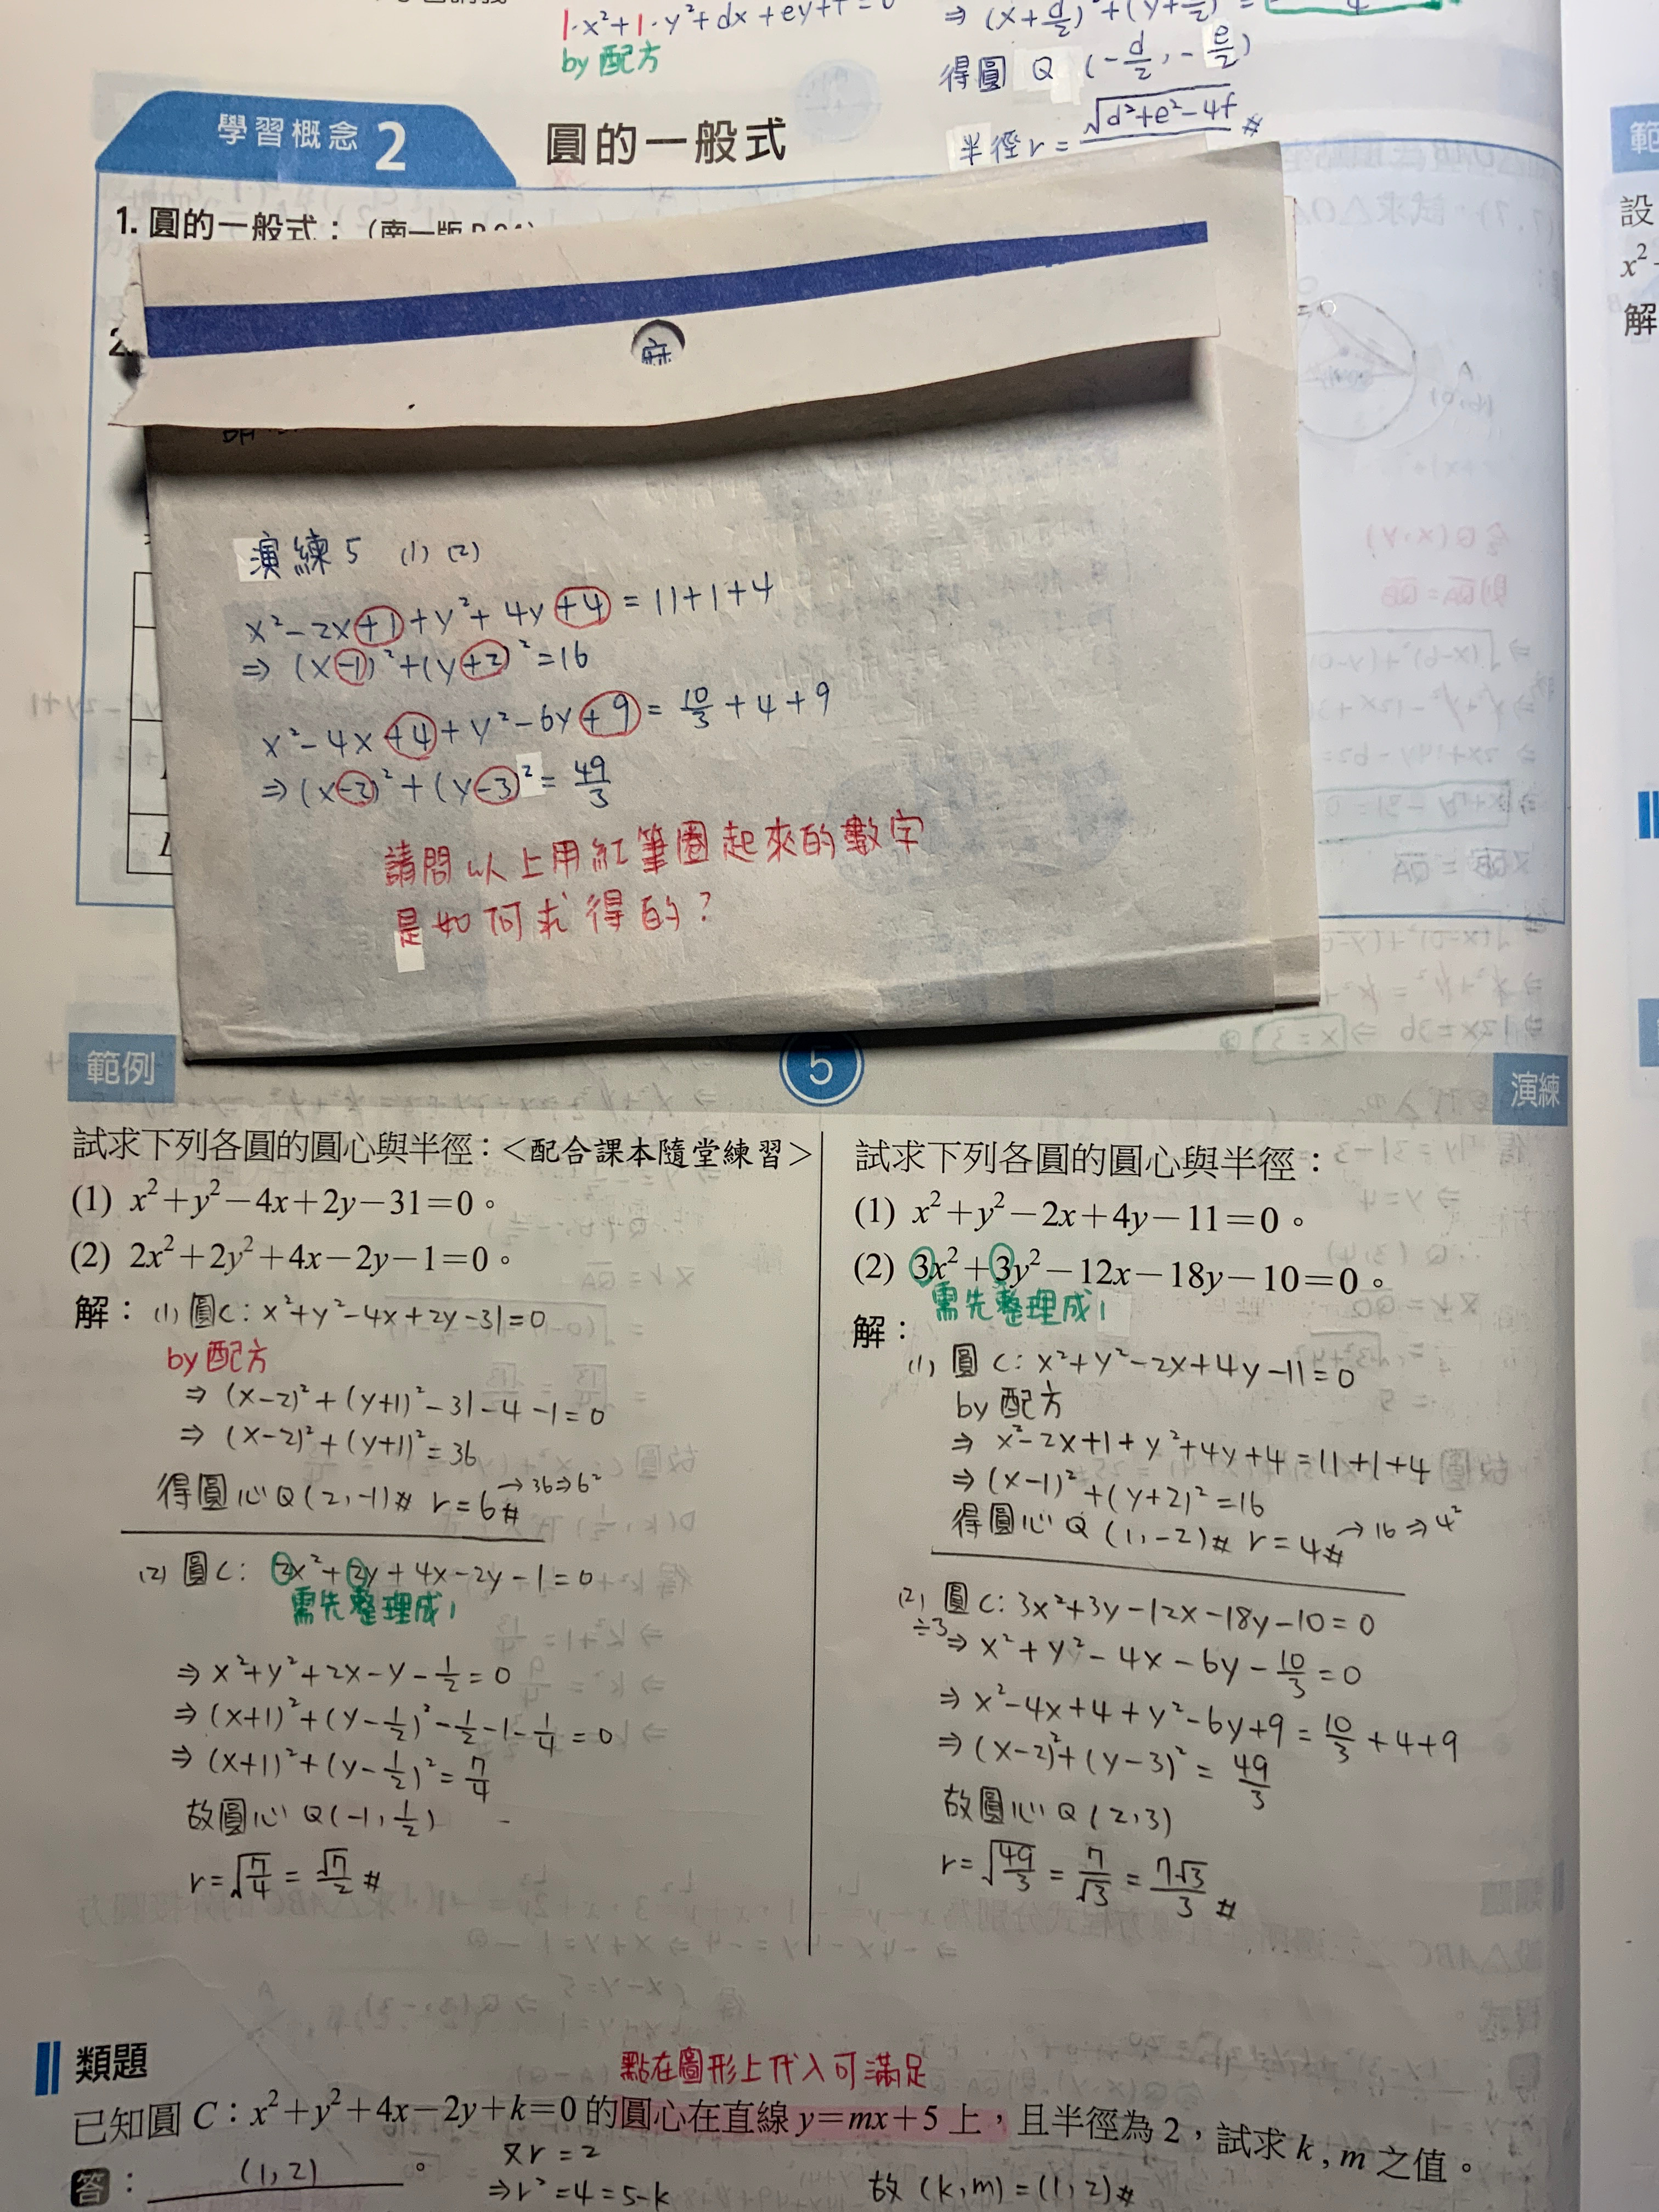 1·x²+1·y²+dx+ey+f=0
by 配方
得圓 Q (-d/2, -e/2)
半徑 r = √(d²+e²-4f) #
學習概念 2 圓的一般式
1. 圓的一般式：（南一版
2.
麻
演練5 (1) (2)
x²-2x+1+y²+4y+4=11+1+4
⇒ (x-1)²+(y+2)²=16
x²-4x+4+y²-6y+9=10/3+4+9
⇒ (x-2)²+(y-3)²=49/3
請問以上用紅筆圈起來的數字
是如何求得的？
範例 5 演練
試求下列各圓的圓心與半徑：<配合課本隨堂練習>
(1) x²+y²-4x+2y-31=0。
(2) 2x²+2y²+4x-2y-1=0。
解：(1) 圓C: x²+y²-4x+2y-31=0
by 配方
⇒ (x-2)²+(y+1)²-31-4-1=0
⇒ (x-2)²+(y+1)²=36
得圓心Q(2,-1)# r=6# →36⇒6²
(2) 圓C: 2x²+2y+4x-2y-1=0
需先整理成1
⇒ x²+y²+2x-y-1/2=0
⇒ (x+1)²+(y-1/2)²-1/2-1-1/4=0
⇒ (x+1)²+(y-1/2)²=7/4
故圓心Q(-1,1/2)
r=√(7/4)=√7/2 #
試求下列各圓的圓心與半徑：
(1) x²+y²-2x+4y-11=0。
(2) 3x²+3y²-12x-18y-10=0。
需先整理成1
解：
(1) 圓C: x²+y²-2x+4y-11=0
by 配方
⇒ x²-2x+1+y²+4y+4=11+1+4
⇒ (x-1)²+(y+2)²=16
得圓心Q (1,-2)# r=4# →16⇒4²
(2) 圓C: 3x²+3y-12x-18y-10=0
÷3⇒ x²+y²-4x-6y-10/3=0
⇒ x²-4x+4+y²-6y+9=10/3+4+9
⇒ (x-2)²+(y-3)²=49/3
故圓心Q (2,3)
r=√(49/3)=7/√3=7√3/3 #
類題
點在圖形上代入可滿足
已知圓C：x²+y²+4x-2y+k=0的圓心在直線y=mx+5上，且半徑為2，試求k,m之值。
答：(1,2)。
又r=2
⇒r²=4=5-k
故 (k,m)=(1,2)#
範
設
x²-
解